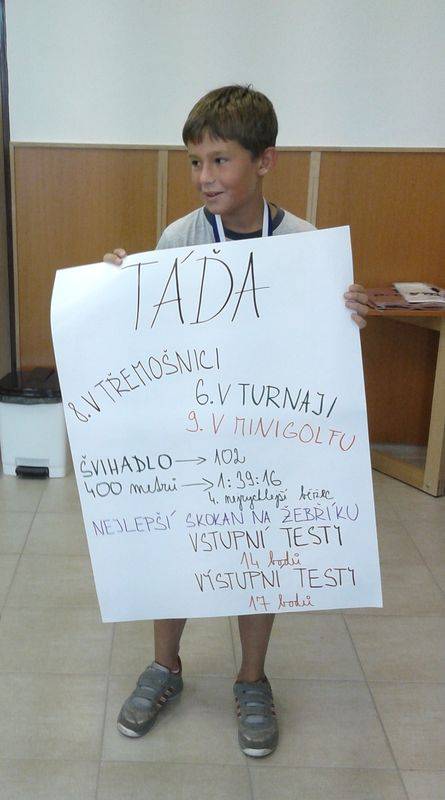 TÁĎA
8. V TŘEMOŠNICI
6. V TURNAJI
9. V MINIGOLFU
ŠVIHADLO → 102
400 metrů → 1:39:16
4. nejrychlejší běžec
NEJLEPŠÍ SKOKAN NA ŽEBŘÍKU
VSTUPNÍ TESTY
14 bodů
VÝSTUPNÍ TESTY
17 bodů